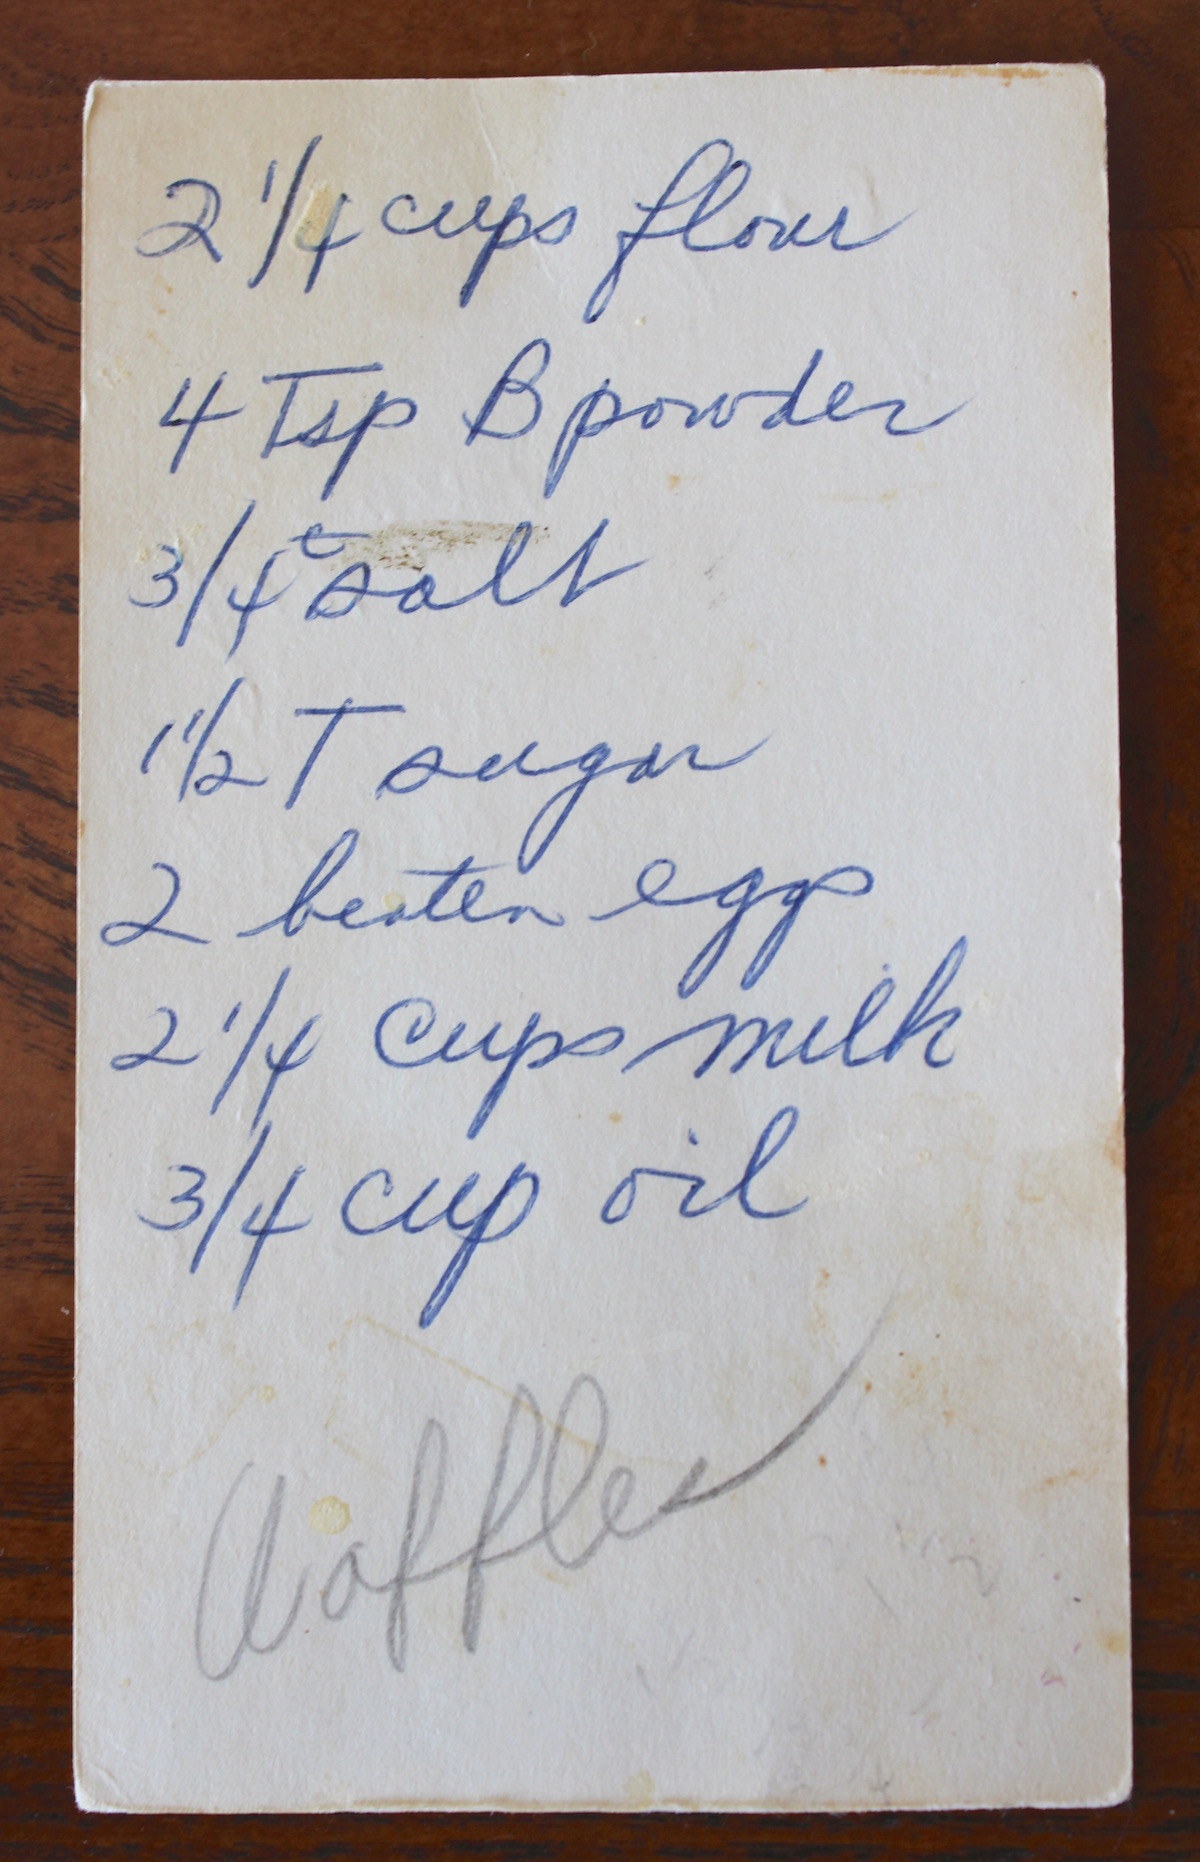 2 1/4 cups flour
4 Tsp B powder
3/4 t salt
1 1/2 T sugar
2 beaten eggs
2 1/4 cups milk
3/4 cup oil
Waffles